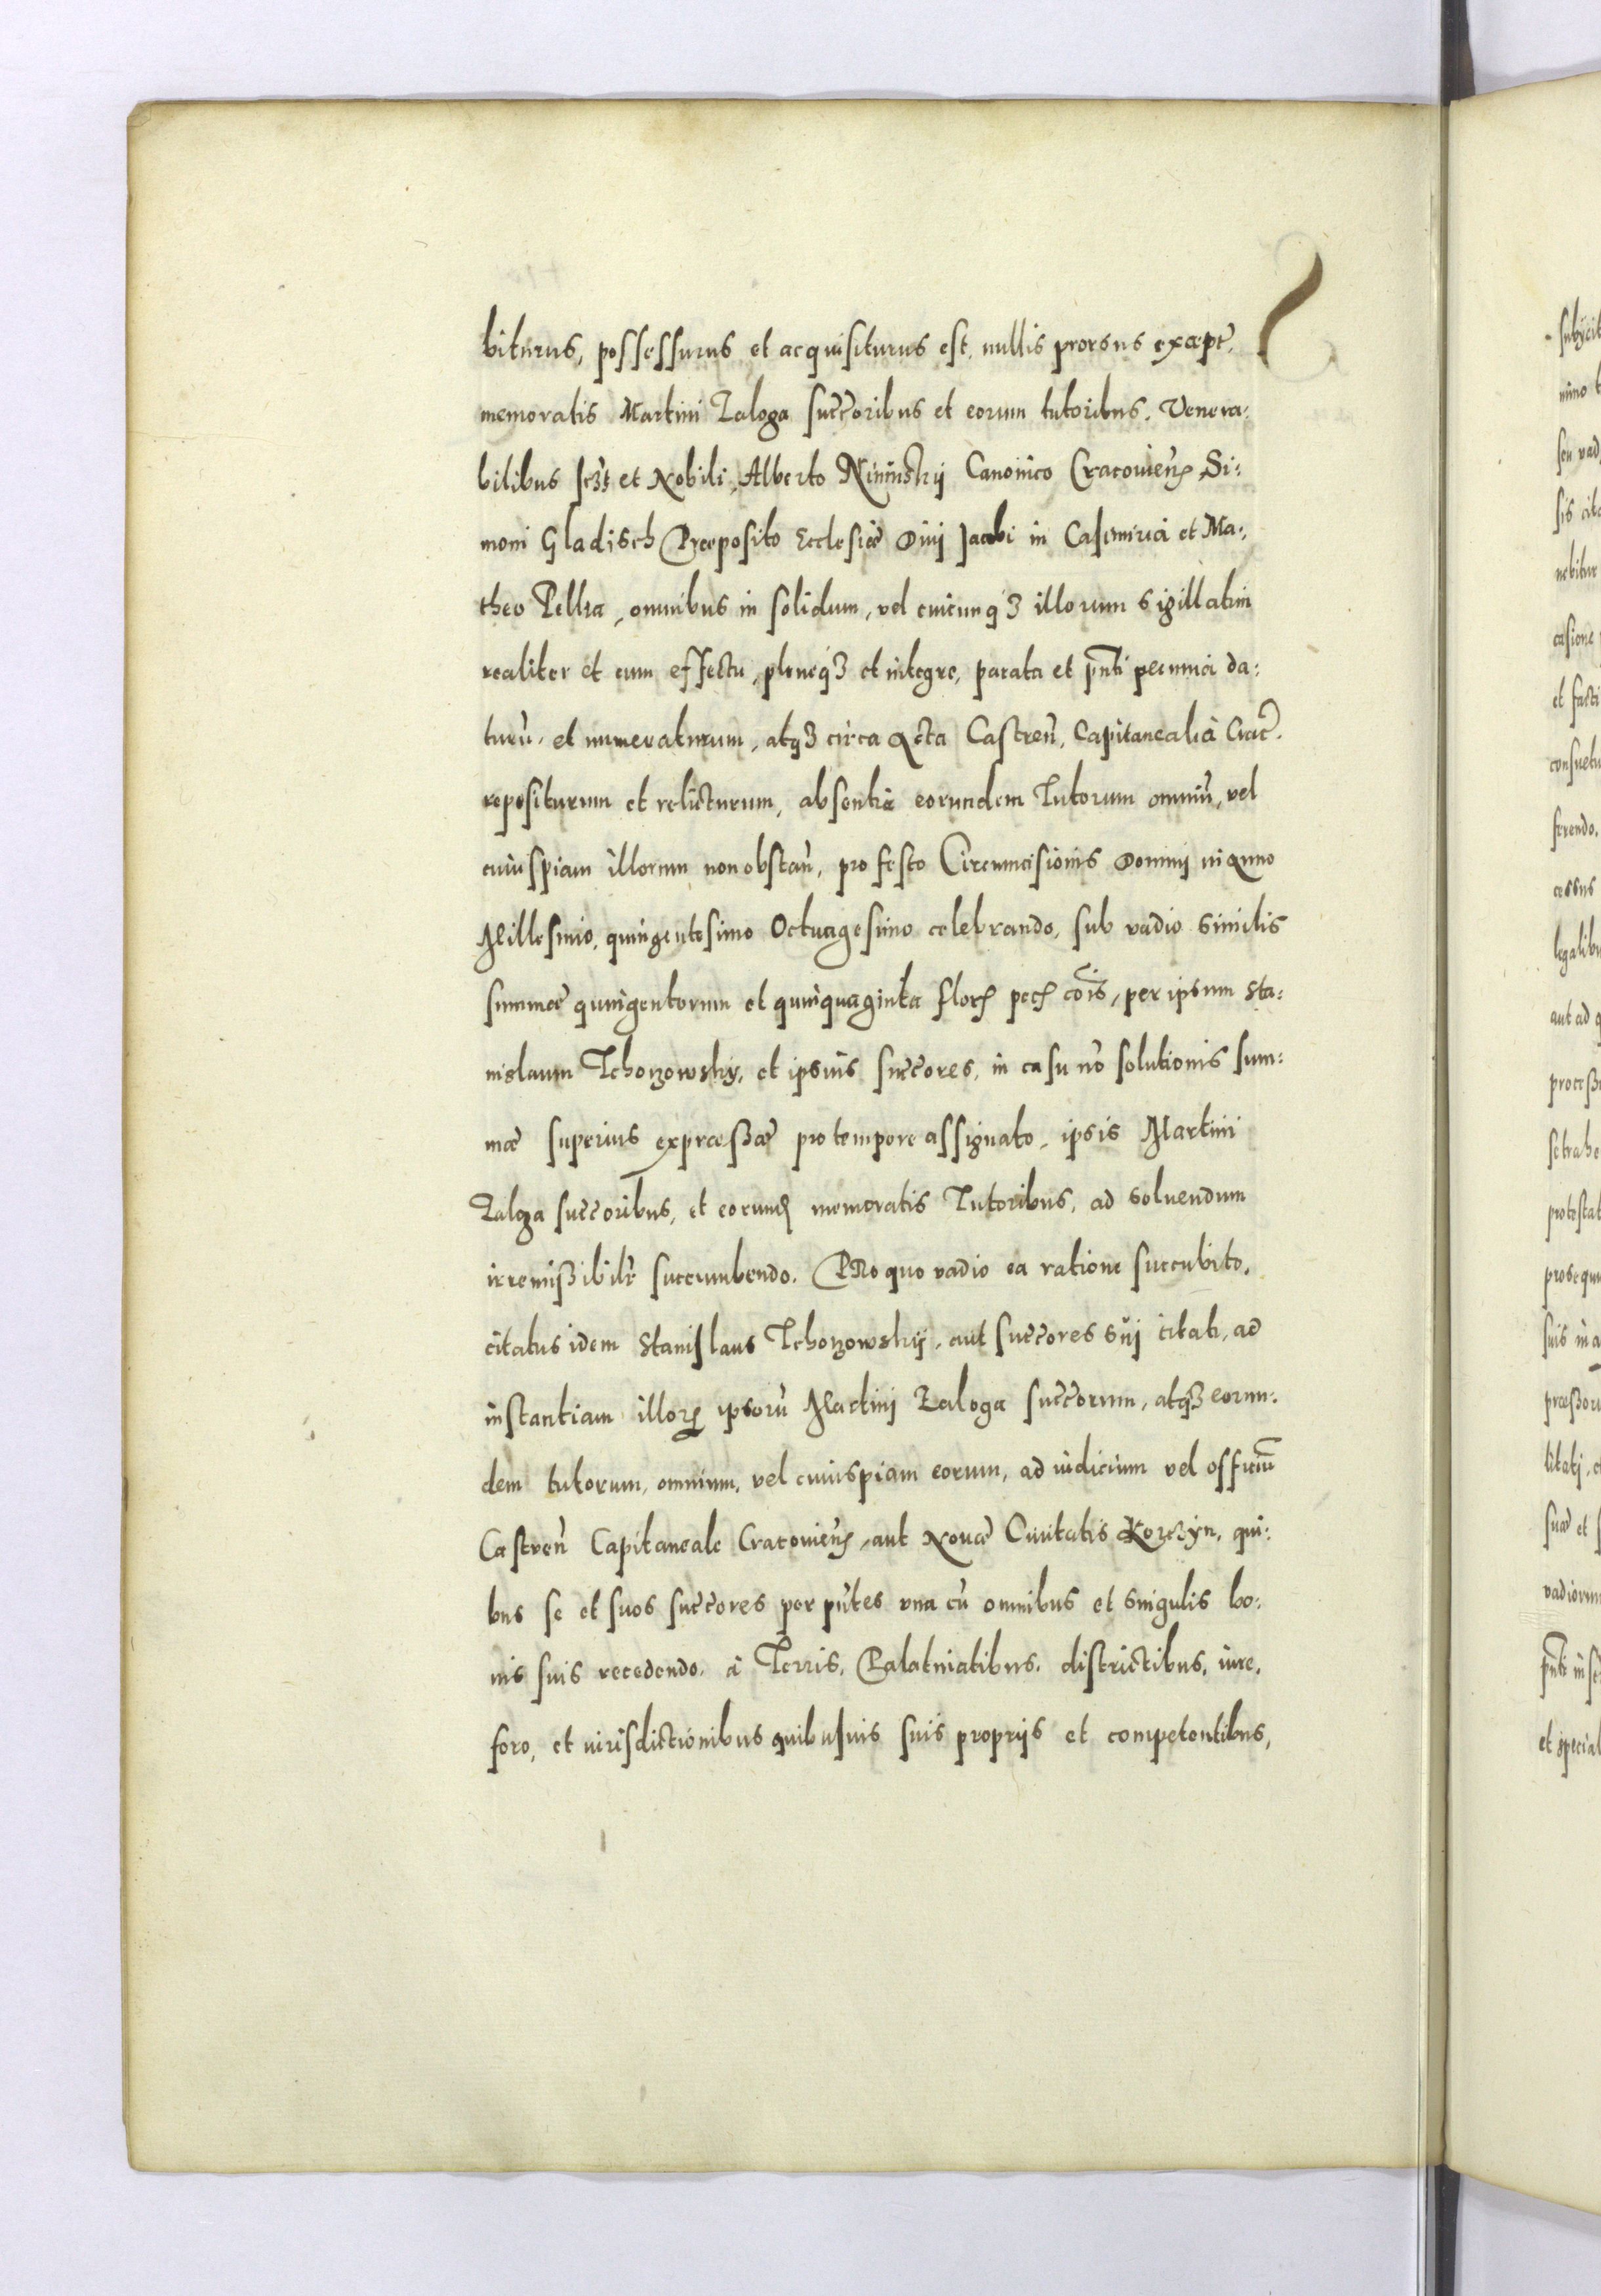 biturus, possessurus et acquisiturus est, nullis prorsus except̃,
memoratis Martini Zaloga succ̃oribus et eorum tutoribus. Venera:
bilibus scz̃ et Nobili, Alberto Nininskij Canonico Cracovien̄, Si:
moni Gladisch Præposito Ecclesiæ Divi Jacobi in Casimiria et Ma:
theo Pellza, omnibus in solidum, vel cuicunqꝫ illorum sigillatim
realiter et cum effectu, pleneqꝫ et integre, parata et pñti pecunia da:
turũ et numeraturum, atqꝫ circa Acta Castreñ, Capitanealia Crac̃.
repositurum et relicturum, absentia eorundem Tutorum omniũ, vel
cuiuspiam illorum non obstañ, pro festo Circumcisionis Domini in Anno
Millesimo, quingentesimo Octuagesimo celebrando, sub vadio similis
summæ quingentorum et quinquaginta florꝭ pecꝭ cõis, per ipsum Sta:
nislaum Tchorzowsky, et ipsius succ̃ores, in casu nõ solutionis sum:
mæ superius expræssæ pro tempore assignato, ipsis Martini
Zaloga succ̃oribus, et eorundꝭ memoratis Tutoribus, ad solvendum
irremissibilr̃ succumbendo. PRo quo vadio ea ratione succubito,
citatus idem Stanislaus Tchorzowskij, aut succ̃ores sui citati, ad
instantiam illorꝝ ipsorũ Martinj Zaloga succ̃orum, atqꝫ eorun:
dem tutorum, omnium, vel cuiuspiam eorum, ad iudicium vel officiũ
Castreñ Capitaneale Cracovieñ, aut Novæ Civitatis Korczyn, qui:
bus se et suos succ̃ores per pñtes una cũ omnibus et singulis bo:
nis suis recedendo, à Terris, Palatinatibus, districtibus, iure,
foro, et iurisdictionibus quibusvis suis proprijs et competentibus,